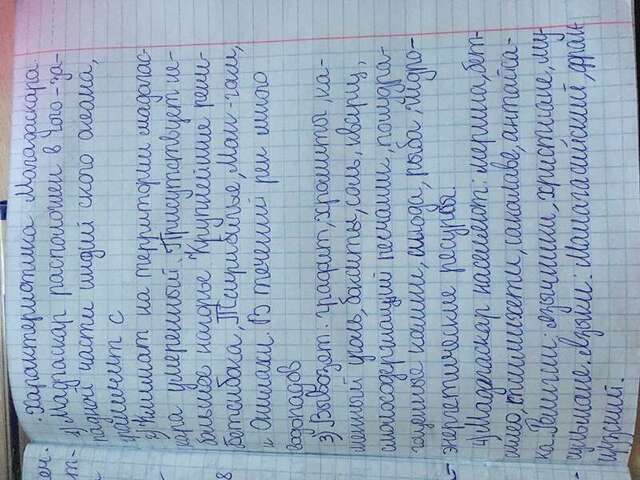 Характеристика Мадагаскара.
1) Мадгаскар расположен в юго-за-
падной части индийского океана,
граничит с
2) Климат на территории мадагас-
кара умеренный. Присутствует не-
большое нагорье. Крупнейшие реки-
Бетсибока, Тсирибихье, Ман-гоки,
и Онилахи. В течений рек много
водопадов
3) Вывозят: графит, хромиты, ка-
менный уголь, бокситы, соль, кварц,
смолосодержащий песчаник, полудра-
гоценные камни, слюда, рыба, гидро-
энергетические ресурсы.
4) Мадагаскар населяют: мерина, бет-
силео, тсимихети, сакалаве, антайса-
ка. Религии: язычники, христиане, му-
сульмане. Языки: Малагасийский, фран-
цузский.